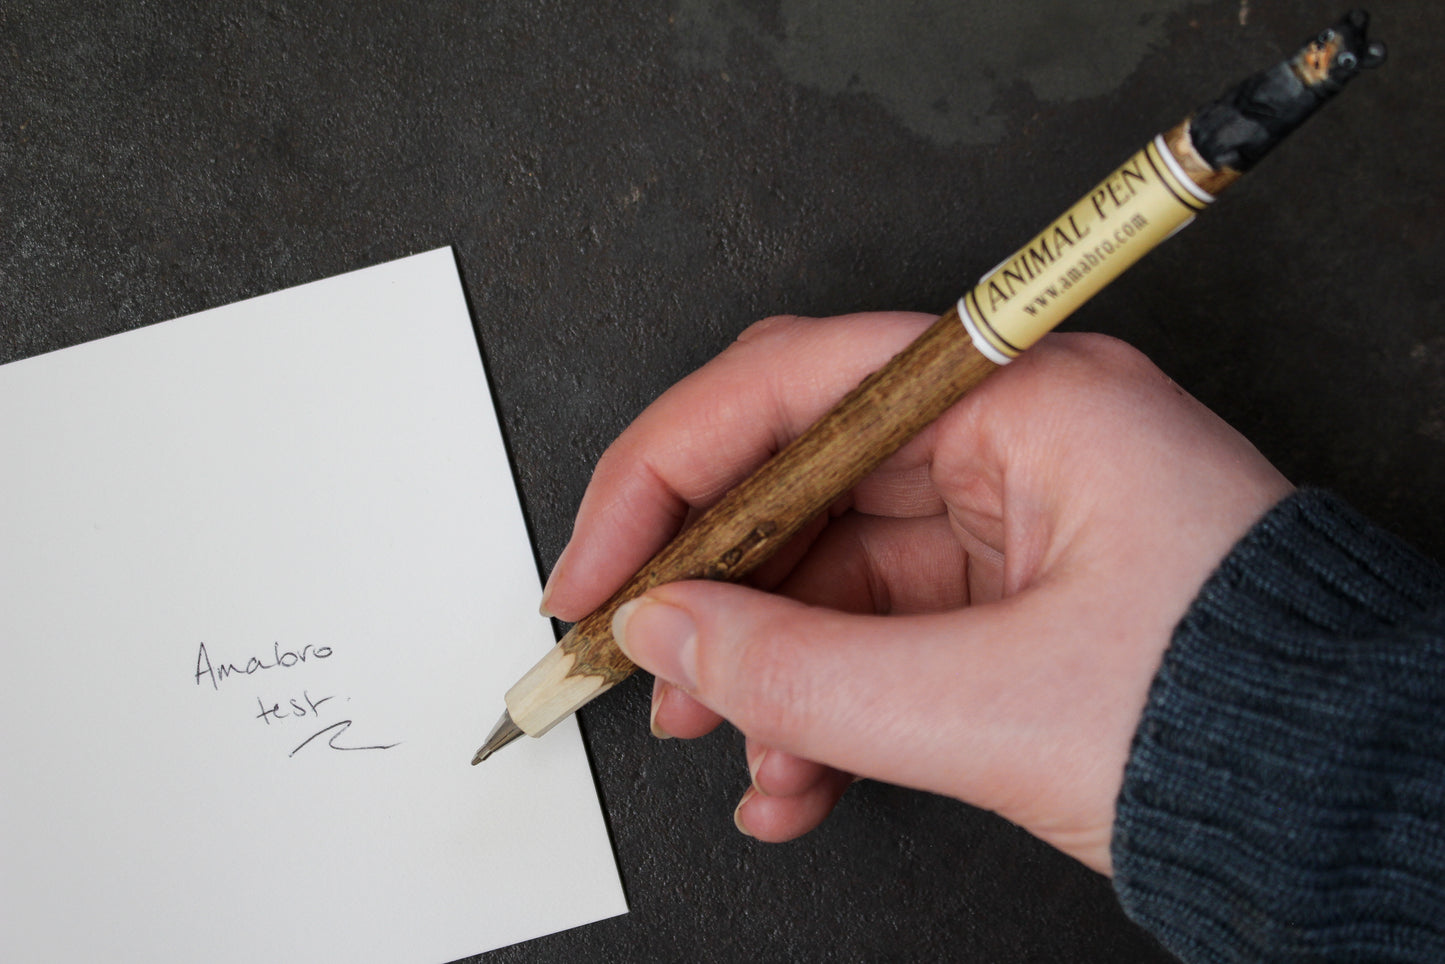 ANIMAL PEN
www.amabro.com
Amabro
test.